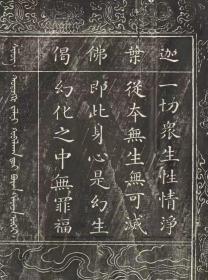 迦葉佛偈
一切衆生性清淨
從本無生無可滅
即此身心是幻生
幻化之中無罪福